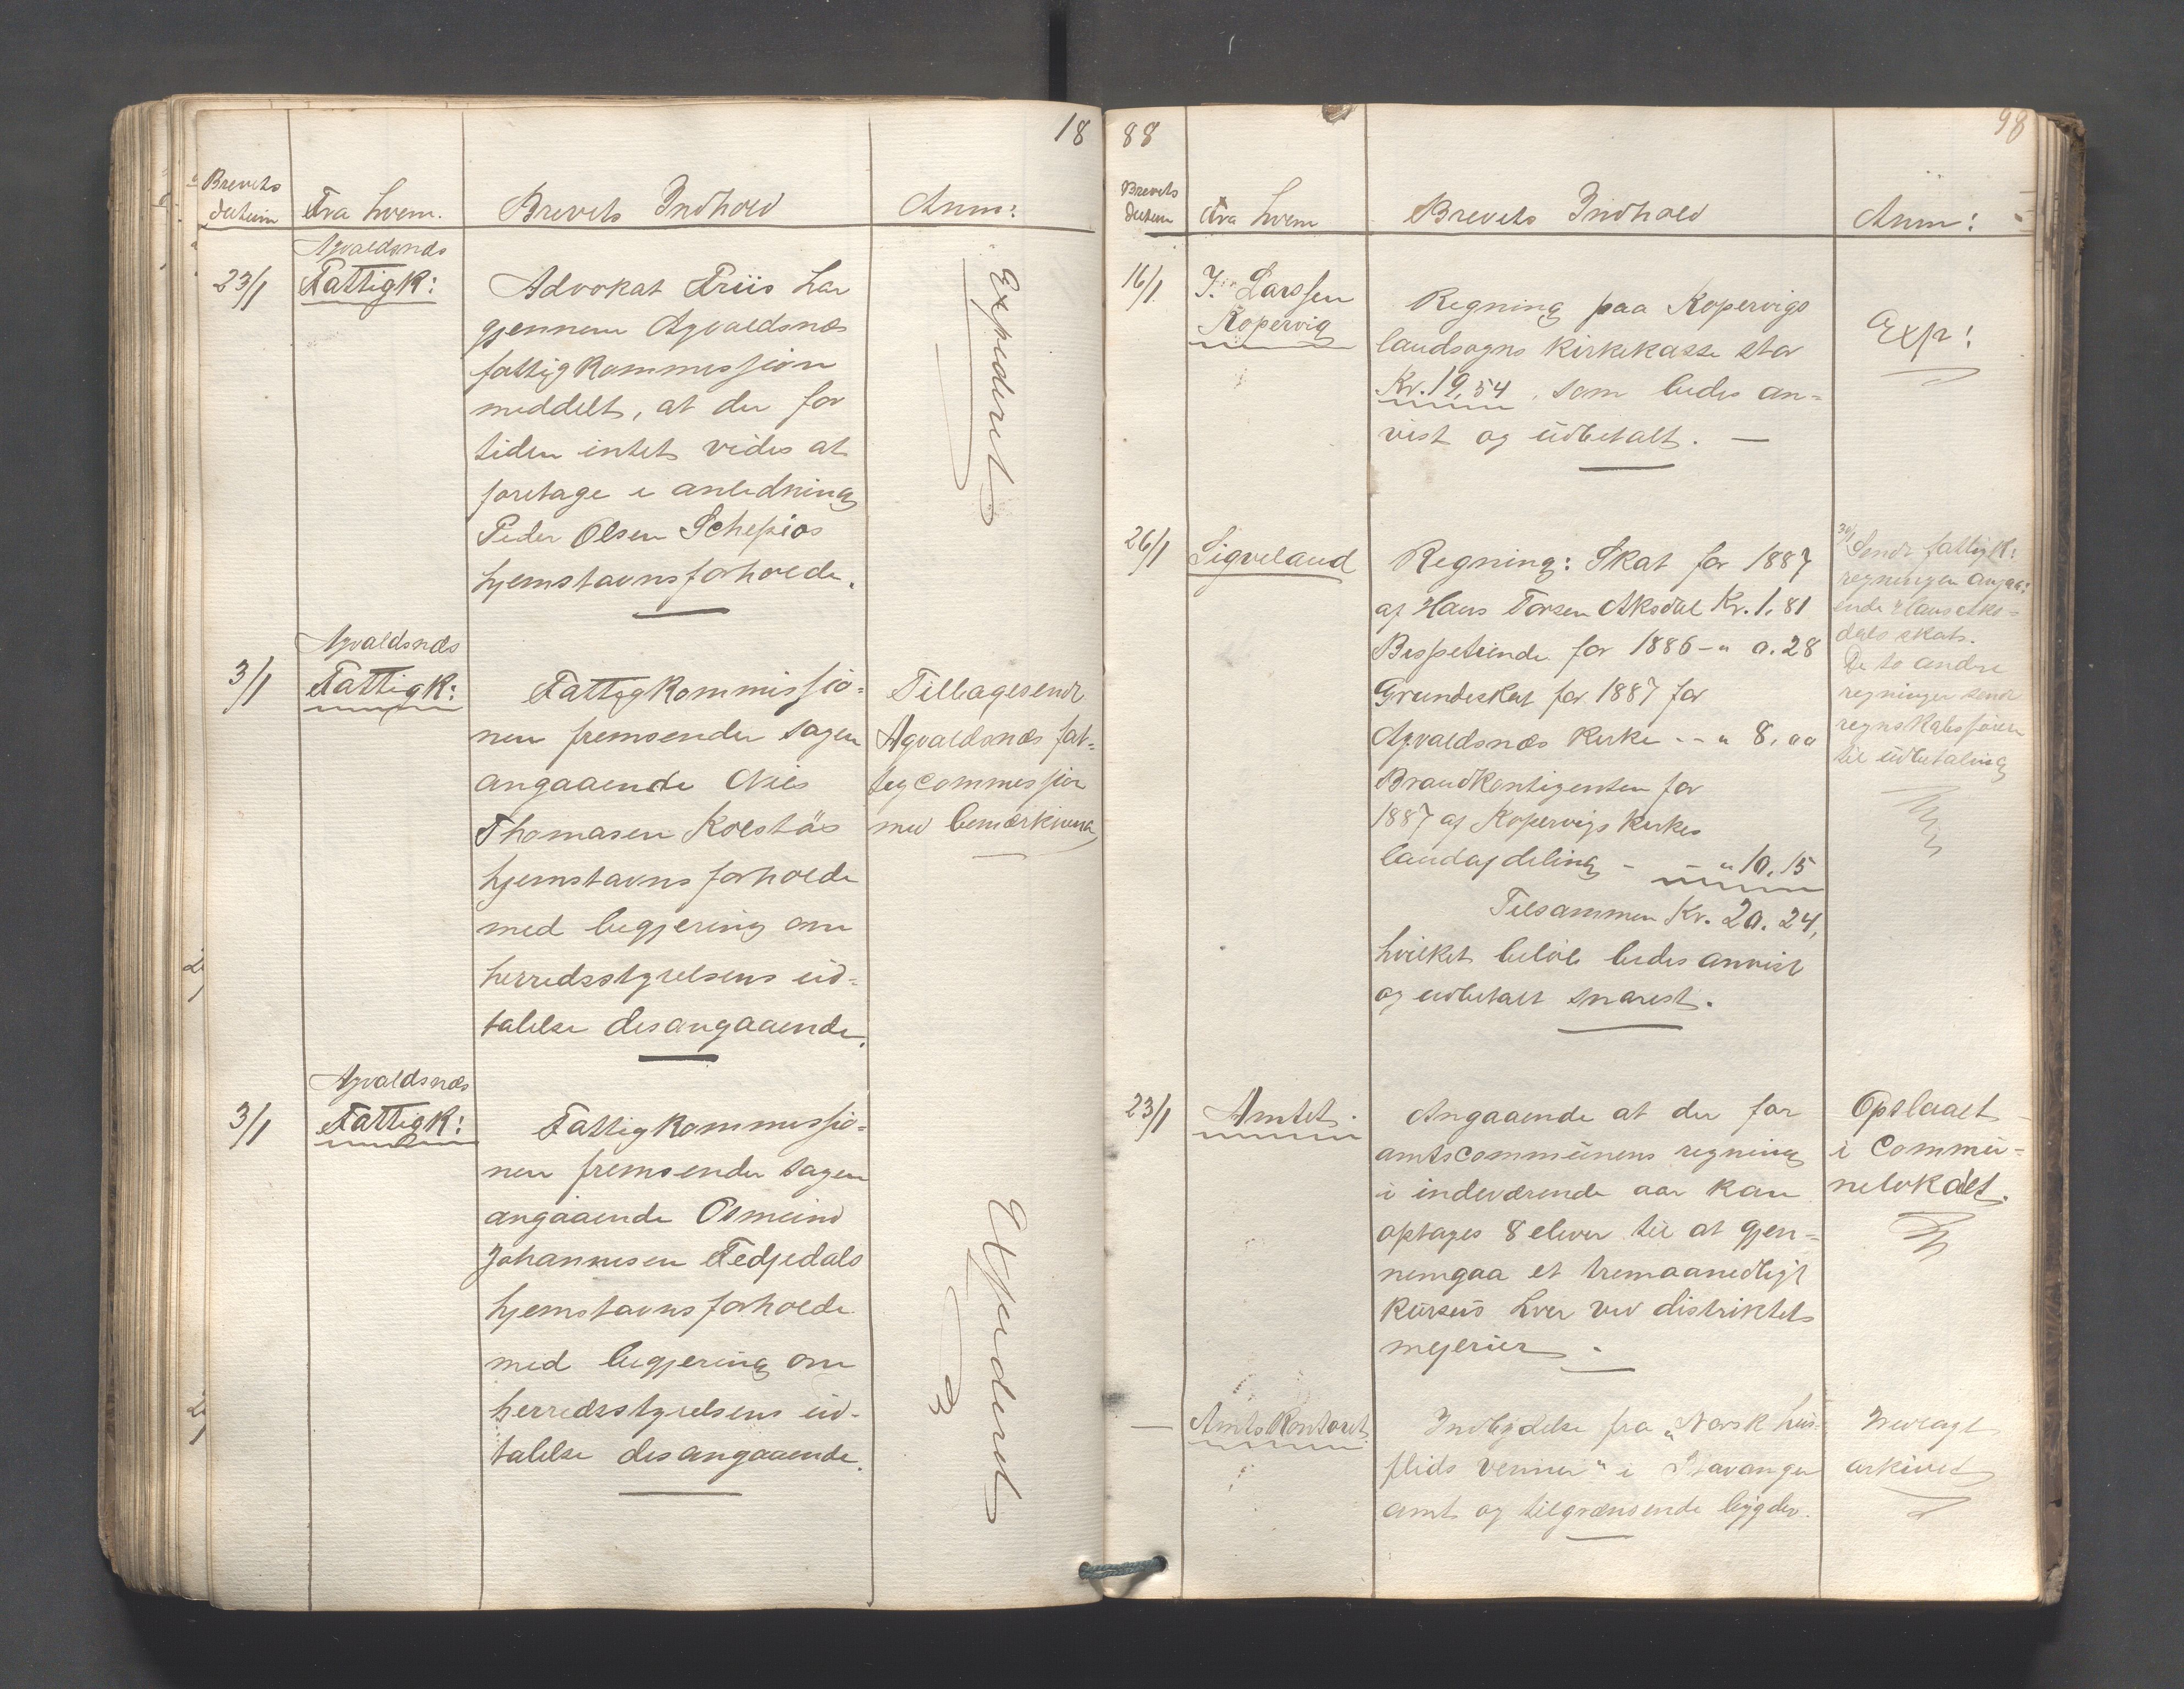 18
Brevets
datum
Fra hvem.
Brevets Indhold
Anm:
Agvaldsnæs
23/1
Fattigk:
Advokat Friis har
gjennem Agvaldsnæs
fattigkommission
meddelt, at der for
tiden intet vides at
foretage i anledning
Peder Olsen
hjemstavnsforholde.
Expederet
Agvaldsnæs
3/1
Fattigk:
Fattigkommissio-
nen fremsender sagen
angaaende Nils
Thomasen Kolstøs
hjemstavnsforholde
med begjering om
herredsstyrelsens ud-
talelse desangaaende.
Tilbagesendt
Agvaldsnæs fat-
tigcommission
med bemærkning
Agvaldsnæs
3/1
Fattigk:
Fattigkommissio-
nen fremsender sagen
angaaende Osmund
Johannesen Fedjedals
hjemstavnsforholde
med begjering om
herredsstyrelsens ud-
talelse desangaaende.
Expederet
88
98
Brevets
datum
Fra hvem
Brevets Indhold
Anm:
16/1
J. Larssen
Kopervig
Regning paa Kopervigs
landsogns kirkekasse stor
Kr. 19,54, som bedes an-
vist og udbetalt. —
Exp!
26/1
Sigveland
Regning: Skat for 1887
af Hans Torsen Aksdal Kr. 1.81
Bispetiende for 1886 - " 0.28
Grundeskat for 1887 for
Agvaldsnæs Kirke - - " 8.00
Brandkontigenten for
1887 af Kopervigs kirkes
landafdeling - - " 10.15
Tilsammen Kr. 20.24,
hvilket beløb bedes anvist
og udbetalt snarest.
30/1 Sendt fattigk:
regningen angaa-
ende Hans Aks-
dals skat.
De to andre
regninger sendt
regnskabsfører
til udbetaling
23/1
Amtet.
Angaaende at der for
amtscommunens regning
i indeværende aar kan
optages 8 elever til at gjen-
nemgaa et tremaanedligt
kursus hver ved distriktets
meierier.
Opslaaet
i Commu-
nelokalet.
—
Amtskontoret
Indbydelse fra "Norsk hus-
flids venner" i Stavanger
amt og tilgrænsende bygder.
Indlagt
arkivet